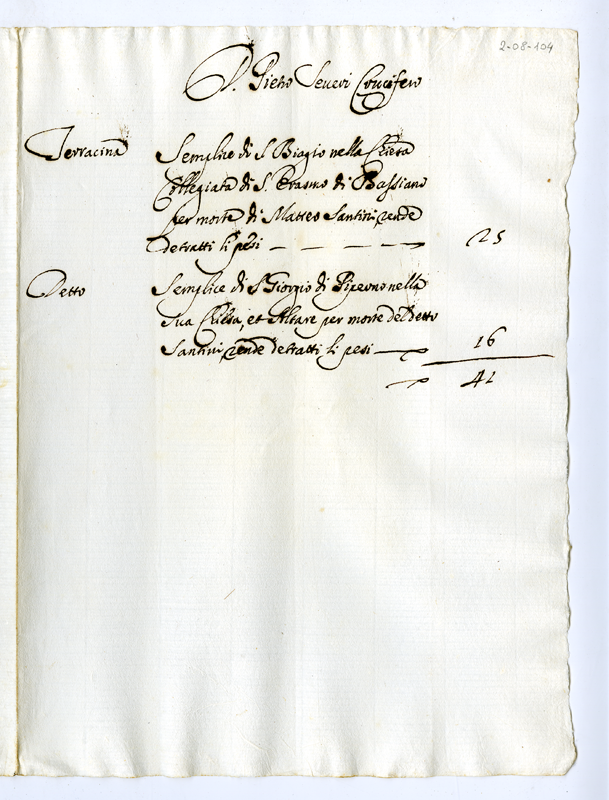 2-08-104
D. Pietro Severi Crucifero
Terracina Semplice di S. Biagio nella Chiesa
Collegiata di S. Erasmo di Bassiano
per morte di Matteo Santini, rende
detratti li pesi — — — — 25
Detto Semplice di S. Giorgio di Piperno nella
sua Chiesa, et Altare per morte del Detto
Santini, rende detratti li pesi — 16
41